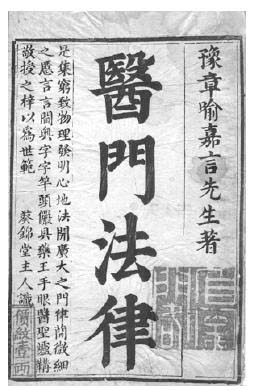 豫章喻嘉言先生著
醫門法律
是集窮致物理發明心地法開廣大之門律簡微細
之愆言言閫奧字字竿頭儼具藥王手眼醫聖爐
敬授之梓以爲世範 葵錦堂主人識